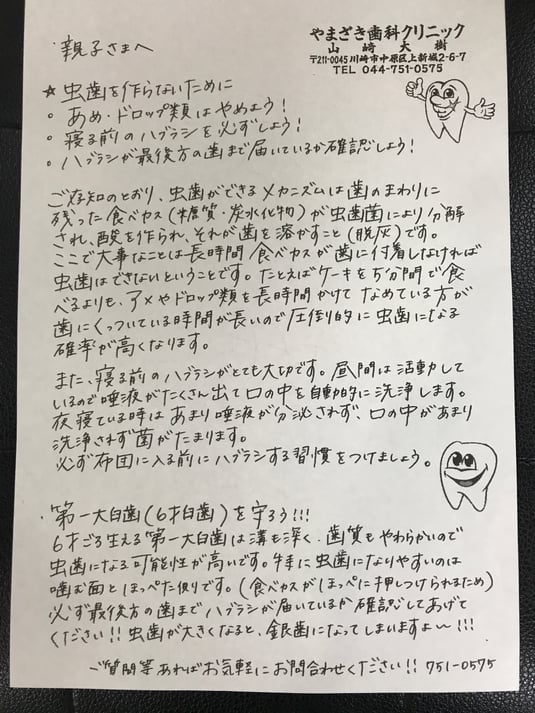 やまざき歯科クリニック
山﨑大樹
〒211-0045 川崎市中原区上新城2-6-7
TEL 044-751-0575
親子さまへ
☆ 虫歯を作らないために
・あめ・ドロップ類はやめよう!
・寝る前のハブラシを必ずしよう!
・ハブラシが最後方の歯まで届いているか確認しよう!
ご存知のとおり、虫歯ができるメカニズムは歯のまわりに
残った食べカス(糖質・炭水化物)が虫歯菌により分解
され、酸を作られ、それが歯を溶かすこと(脱灰)です。
ここで大事なことは長時間食べカスが歯に付着しなければ
虫歯はできないということです。たとえばケーキを5分間で食
べるよりも、アメやドロップ類を長時間かけてなめている方が
歯にくっついている時間が長いので圧倒的に虫歯になる
確率が高くなります。
また、寝る前のハブラシがとても大切です。昼間は活動して
いるので唾液がたくさん出て口の中を自動的に洗浄します。
夜寝ている時はあまり唾液が分泌されず、口の中があまり
洗浄されず菌がたまります。
必ず布団に入る前にハブラシする習慣をつけましょう。
・第一大臼歯(6才臼歯)を守ろう!!!
6才ごろ生える第一大臼歯は溝も深く、歯質もやわらかいので
虫歯になる可能性が高いです。特に虫歯になりやすいのは
噛む面とほっぺた側です。(食べカスがほっぺに押しつけられるため)
必ず最後方の歯までハブラシが届いているか確認してあげて
ください!!虫歯が大きくなると、銀歯になってしまいますよ〜!!!
ご質問等あればお気軽にお問合わせください!! 751-0575